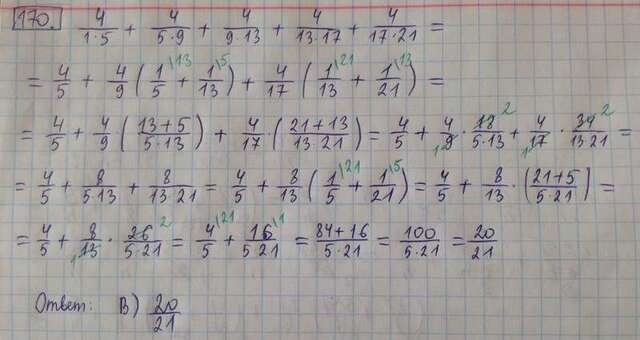 170. 4/(1·5) + 4/(5·9) + 4/(9·13) + 4/(13·17) + 4/(17·21) =
= 4/5 + 4/9 (1\13/5 + 1\5/13) + 4/17 (1\21/13 + 1\13/21) =
= 4/5 + 4/9 ((13+5)/(5·13)) + 4/17 ((21+13)/(13·21)) = 4/5 + 4/9 1 · 18 2/(5·13) + 4/17 1 · 34 2/(13·21) =
= 4/5 + 8/(5·13) + 8/(13·21) = 4/5 + 8/13 (1\21/5 + 1\5/21) = 4/5 + 8/13 · ((21+5)/(5·21)) =
= 4/5 + 8/13 1 · 26 2/(5·21) = 4\21/5 + 16\1/(5·21) = (84+16)/(5·21) = 100/(5·21) = 20/21
Ответ: В) 20/21